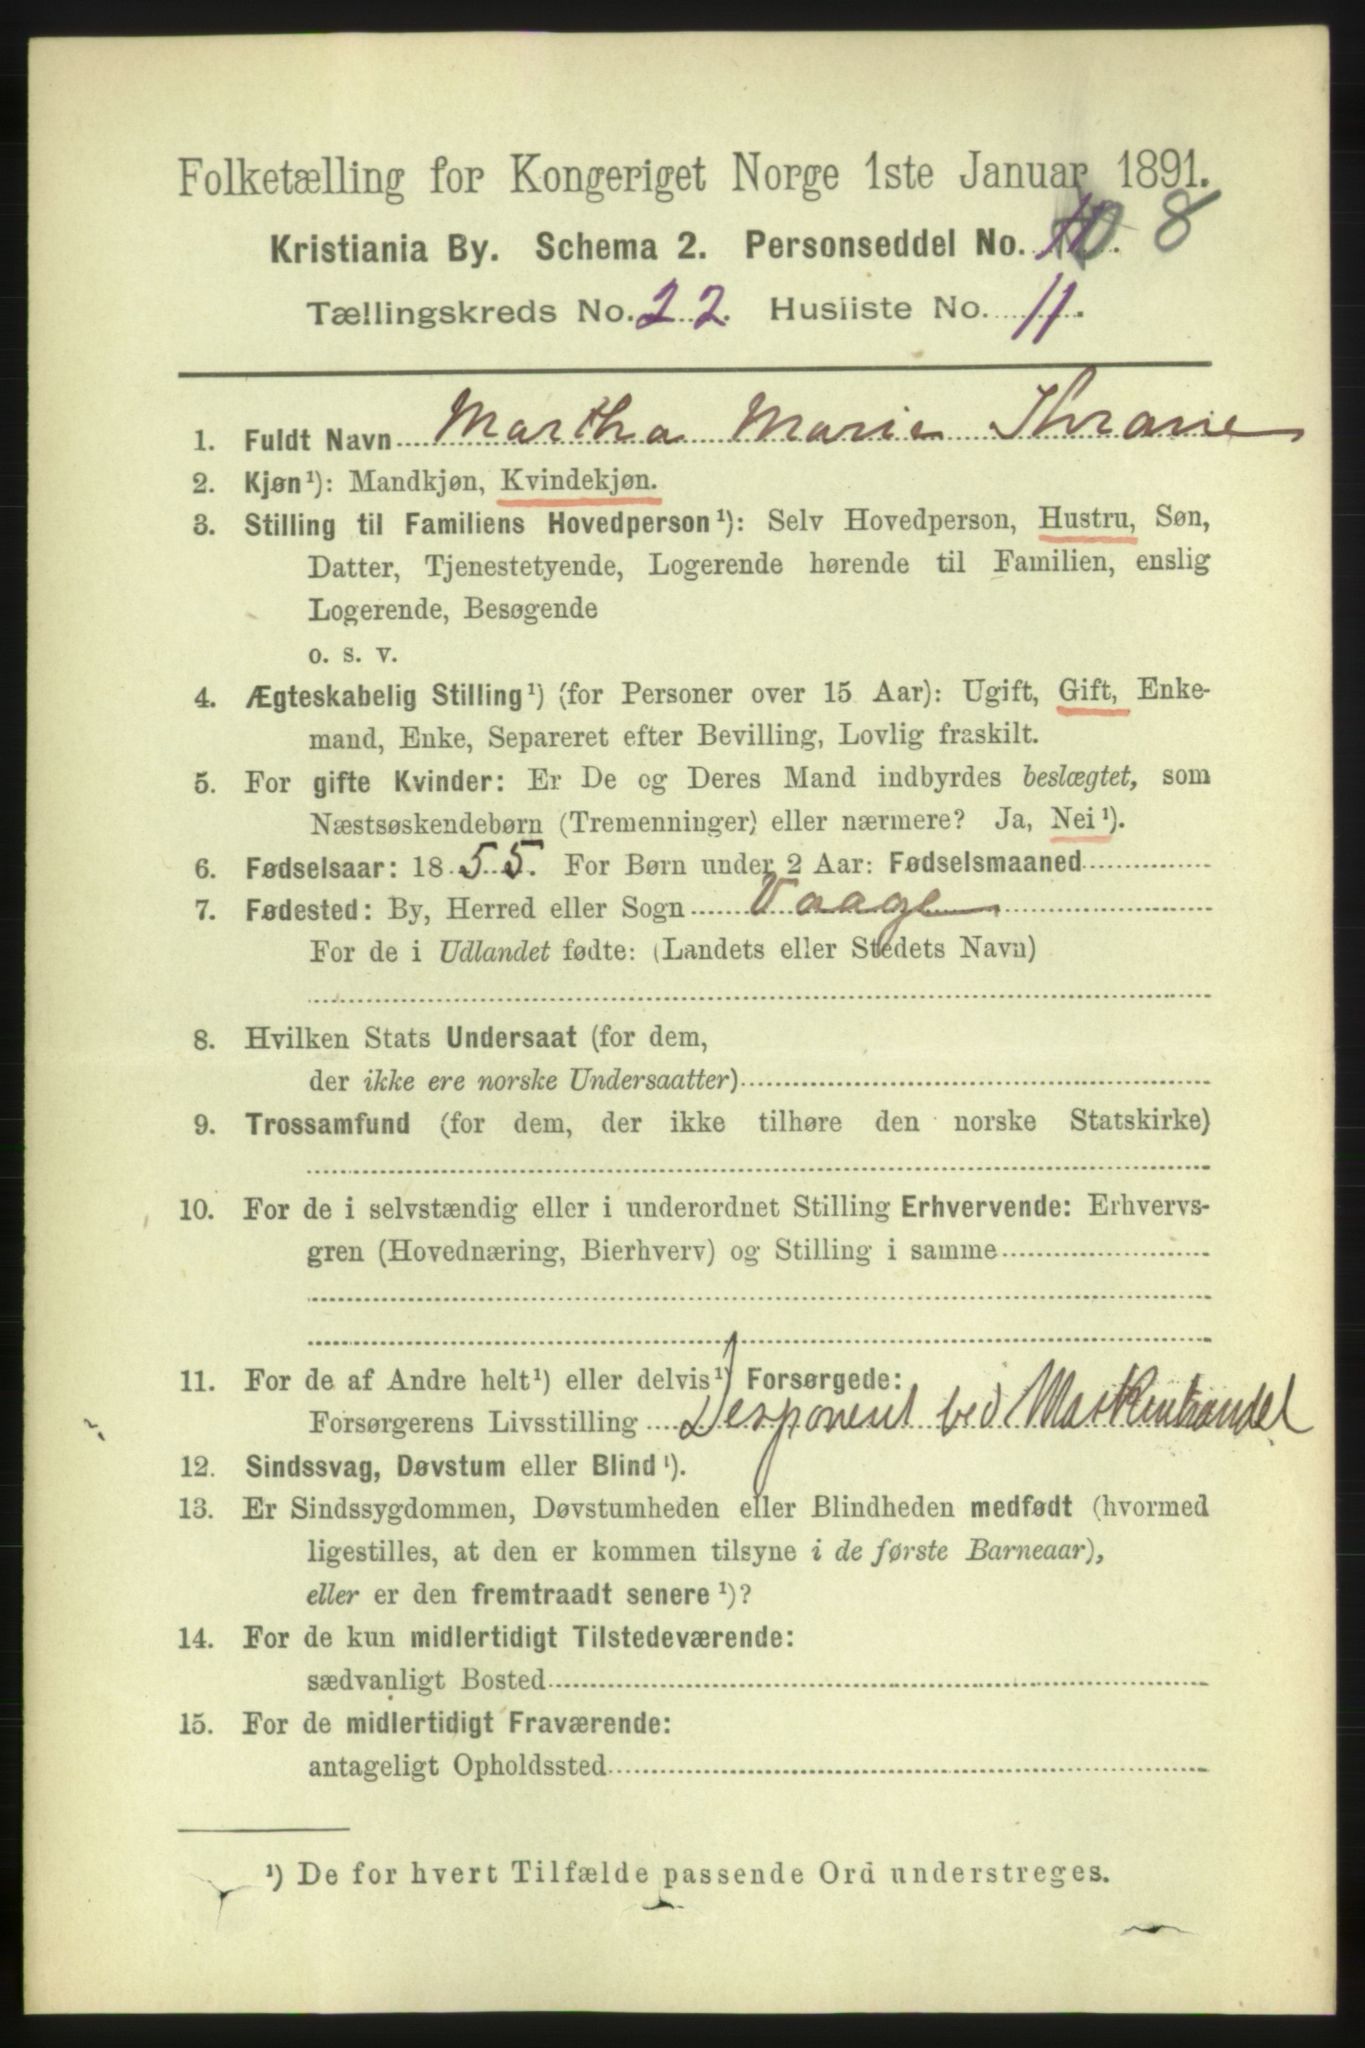 Folketælling for Kongeriget Norge 1ste Januar 1891.
Kristiania By. Schema 2. Personseddel No. 10. 8
Tællingskreds No. 22. Husliste No. 11.
1. Fuldt Navn Martha Marie Thrane
2. Kjøn¹): Mandkjøn, Kvindekjøn.
3. Stilling til Familiens Hovedperson¹): Selv Hovedperson, Hustru, Søn,
Datter, Tjenestetyende, Logerende hørende til Familien, enslig
Logerende, Besøgende
o. s. v.
4. Ægteskabelig Stilling¹) (for Personer over 15 Aar): Ugift, Gift, Enke-
mand, Enke, Separeret efter Bevilling, Lovlig fraskilt.
5. For gifte Kvinder: Er De og Deres Mand indbyrdes beslægtet, som
Næstsøskendebørn (Tremenninger) eller nærmere? Ja, Nei¹).
6. Fødselsaar: 1855. For Børn under 2 Aar: Fødselsmaaned
7. Fødested: By, Herred eller Sogn Vaage
For de i Udlandet fødte: (Landets eller Stedets Navn)
8. Hvilken Stats Undersaat (for dem,
der ikke ere norske Undersaatter)
9. Trossamfund (for dem, der ikke tilhøre den norske Statskirke)
10. For de i selvstændig eller i underordnet Stilling Erhvervende: Erhvervs-
gren (Hovednæring, Bierhverv) og Stilling i samme
11. For de af Andre helt¹) eller delvis¹) Forsørgede:
Forsørgerens Livsstilling Desponent ved Maskinhandel
12. Sindssvag, Døvstum eller Blind¹).
13. Er Sindssygdommen, Døvstumheden eller Blindheden medfødt (hvormed
ligestilles, at den er kommen tilsyne i de første Barneaar),
eller er den fremtraadt senere¹)?
14. For de kun midlertidigt Tilstedeværende:
sædvanligt Bosted
15. For de midlertidigt Fraværende:
antageligt Opholdssted
¹) De for hvert Tilfælde passende Ord understreges.